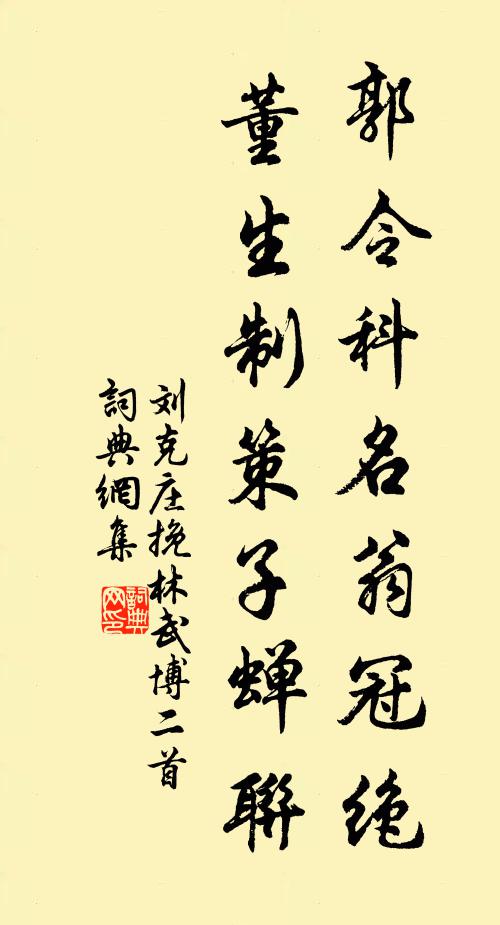 郭令科名翁冠绝
董生制策子蝉聯
刘克庄挽林武博二首
詞典網集
詞典
网印